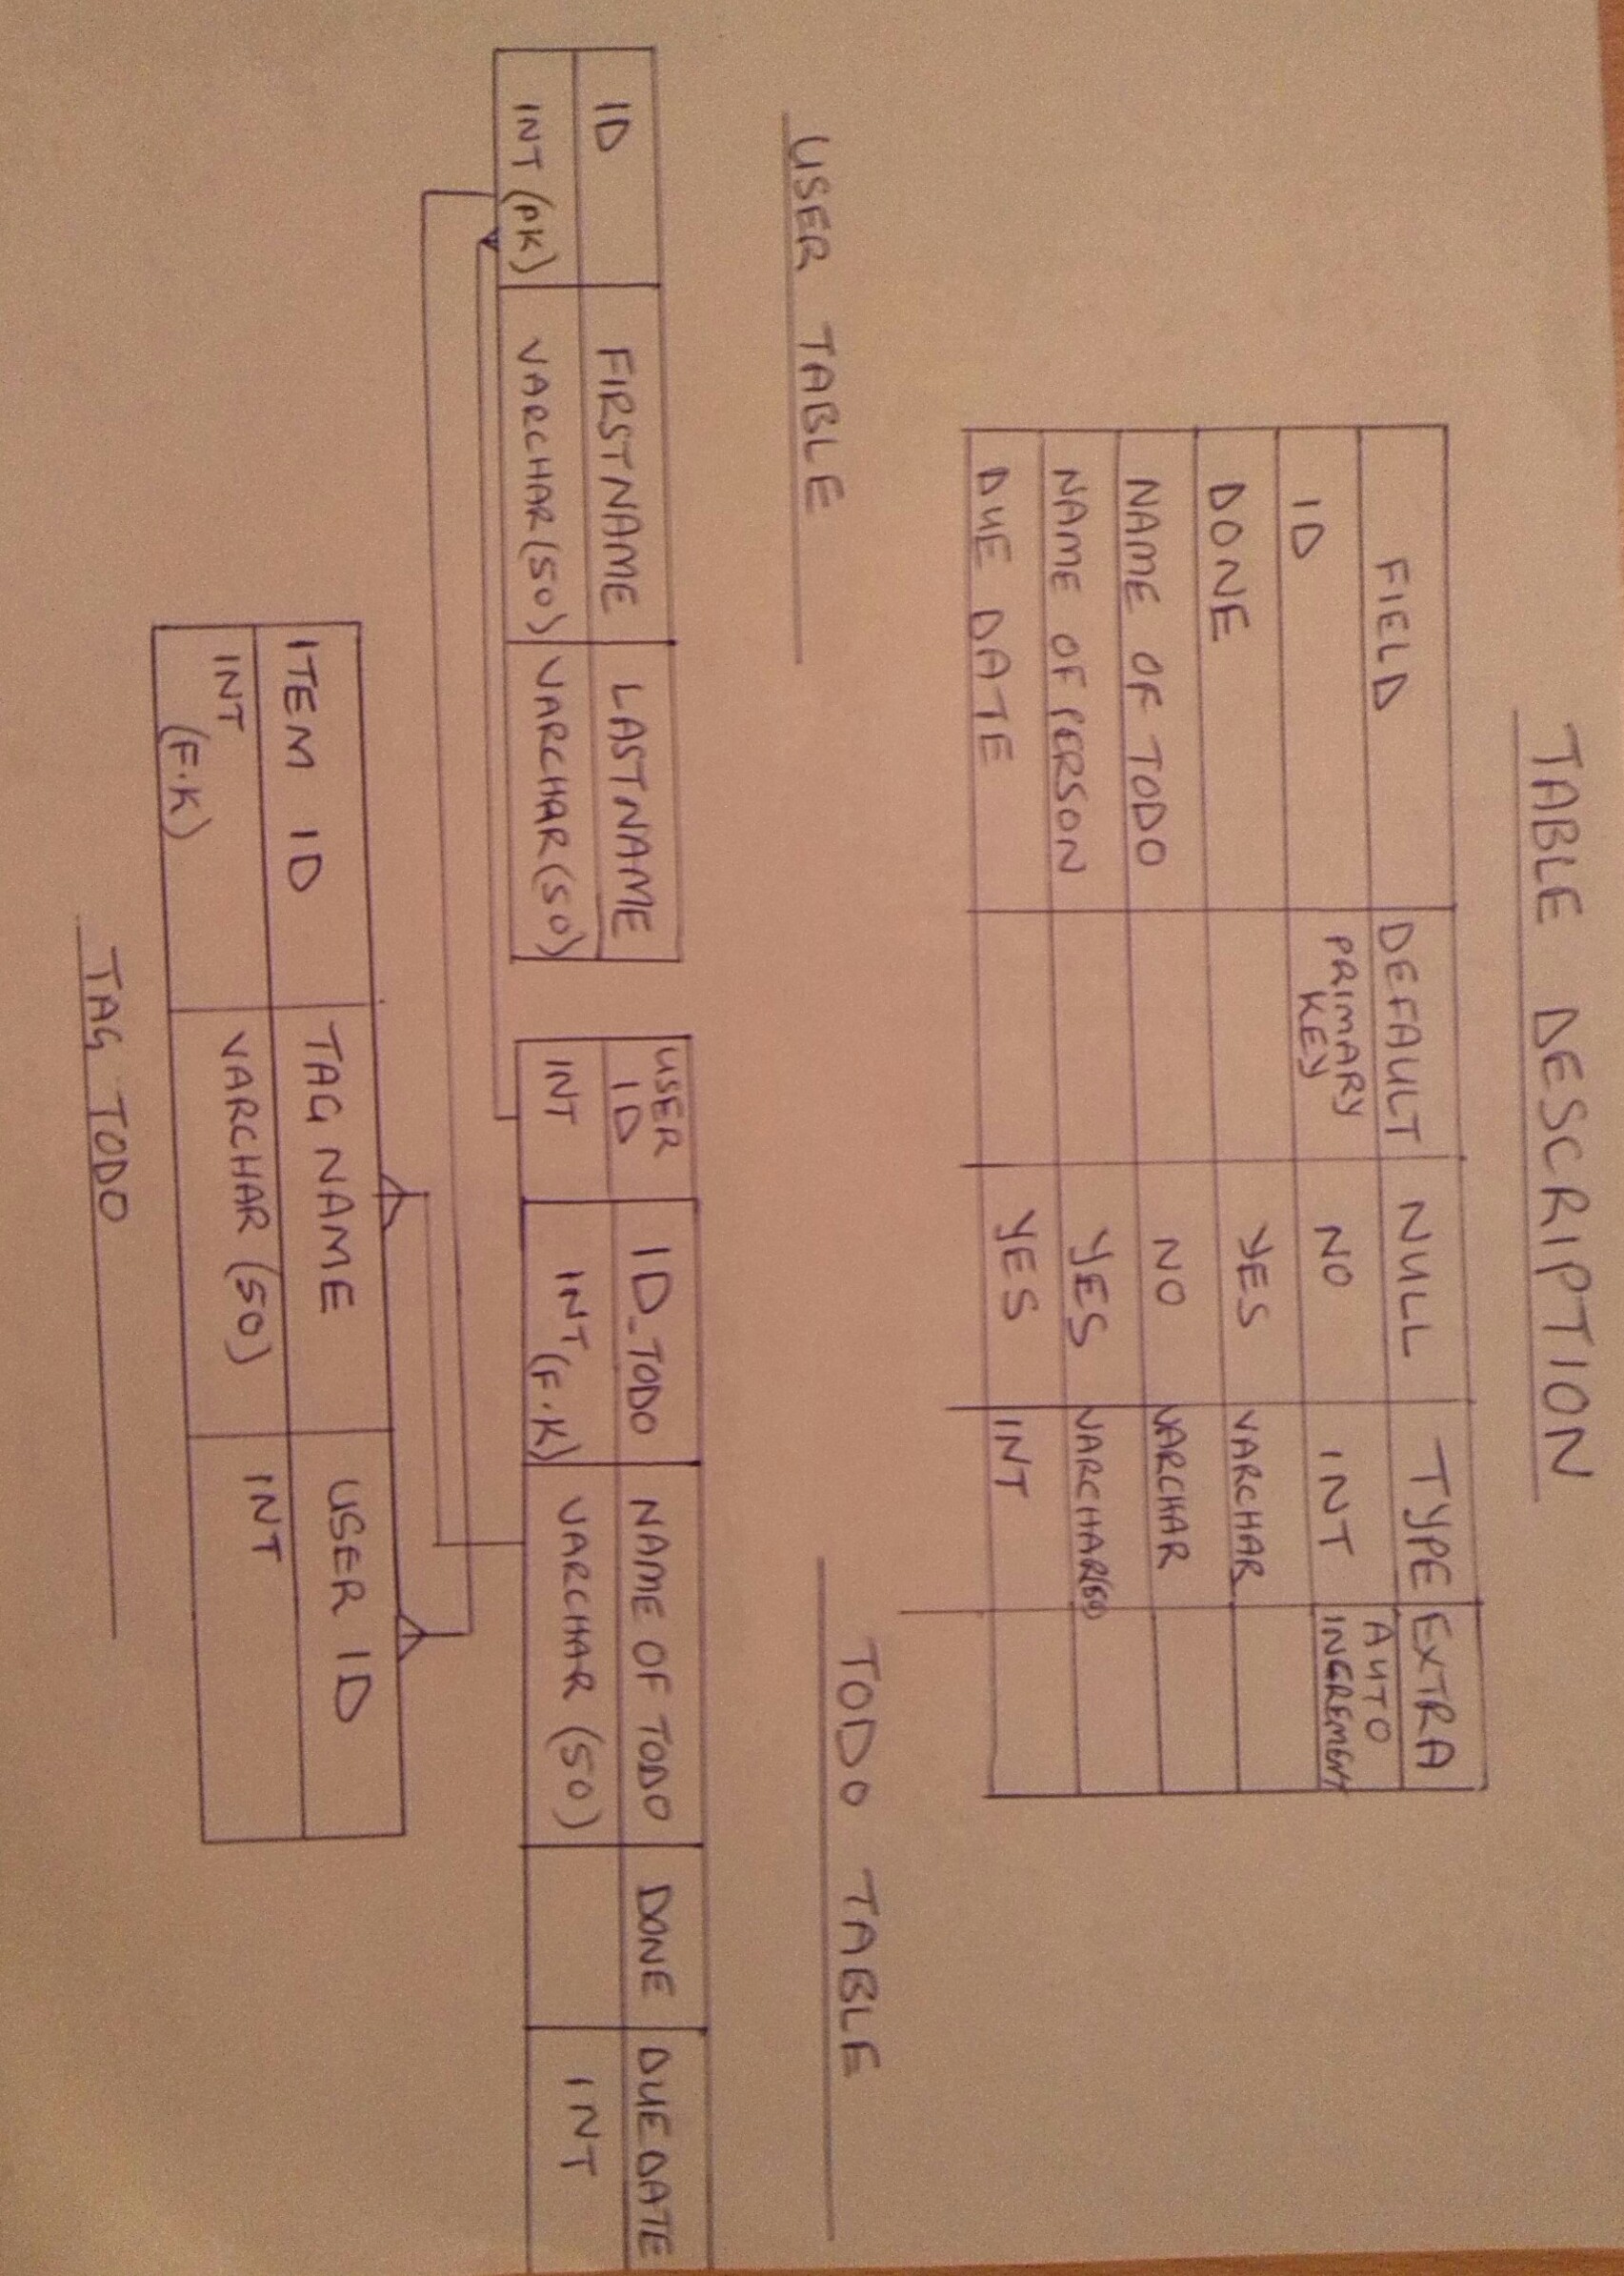 TABLE DESCRIPTION
FIELD DEFAULT NULL TYPE EXTRA
ID PRIMARY KEY NO INT AUTO INCREMENT
DONE YES VARCHAR
NAME OF TODO NO VARCHAR
NAME OF PERSON YES VARCHAR
DUE DATE YES INT
USER TABLE
ID FIRSTNAME LASTNAME
INT (PK) VARCHAR (50) VARCHAR (50)
TODO TABLE
USER ID ID_TODO NAME OF TODO DONE DUEDATE
INT INT (F.K) VARCHAR (50) INT
ITEM ID TAG NAME USER ID
INT (F.K) VARCHAR (50) INT
TAG TODO